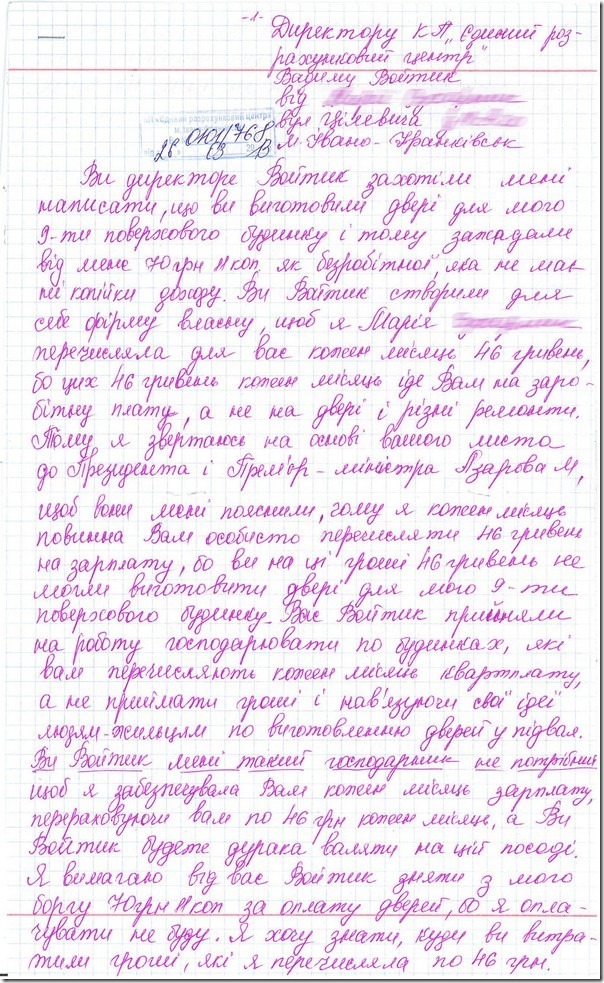 -1-
Директору КП „Єдиний роз-
рахунковий центр"
Вадиму Войтик
від
вул Цілевича
м. Івано-Франківськ
Єдиний розрахунковий центр
ОЮ11/768
26 03 13
Ви директоре Войтик захотіли мені
написати, що ви виготовили двері для мого
9-ти поверхового будинку і тому зажадали
від мене 70 грн 11 коп, як безробітної, яка не має
ні копійки доходу. Ви Войтик створили для
себе фірму власну, щоб я Марія
перечисляла для вас кожен місяць 46 гривень,
бо цих 46 гривень кожен місяць іде Вам на заро-
бітну плату, а не на двері і різні ремонти.
Тому я звертаюсь на основі вашого листа
до Президента і Прем'єр-міністра Азарова М,
щоб вони мені пояснили, чому я кожен місяць
повинна Вам особисто перечисляти 46 гривень
на зарплату, бо ви на ці гроші 46 гривень не
могли виготовити двері для мого 9-ти
поверхового будинку. Вас Войтик прийняли
на роботу господарювати по будинках, які
вам перечисляють кожен місяць квартплату,
а не приймати гроші і нав'язуючи свої ідеї
людям-жильцям по виготовленню дверей у підвал.
Ви Войтик мені такий господарник не потрібний
щоб я забезпечувала Вам кожен місяць зарплату,
перераховуючи вам по 46 грн кожен місяць, а Ви
Войтик будете дурака валяти на цій посаді.
Я вимагаю від вас Войтик зняти з мого
боргу 70 грн 11 коп за оплату дверей, бо я опла-
чувати не буду. Я хочу знати, куди ви витра-
тили гроші, які я перечисляла по 46 грн.